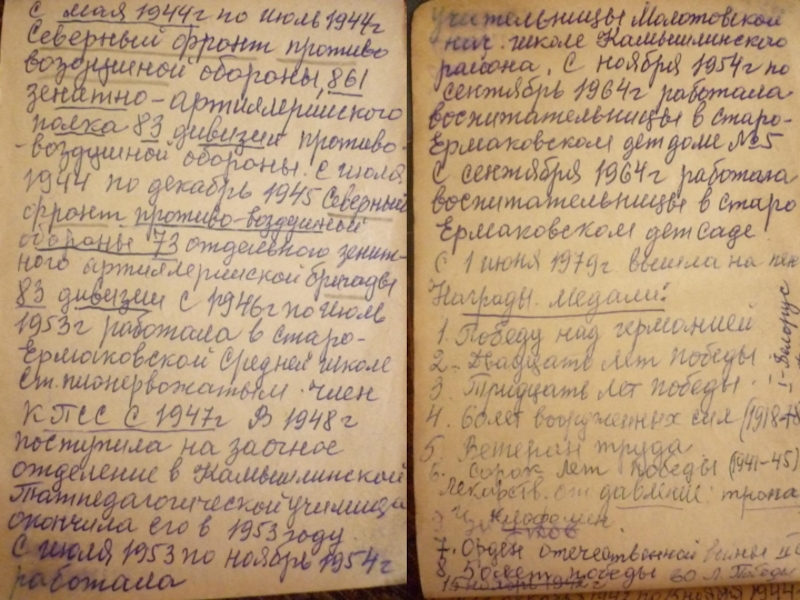 С мая 1944г по июль 1944г
Северный фронт противо
воздушной обороны, 861
зенатно-артиллерийского
полка 83 дивизеи противо-
-воздушной обороны. С июля
1944 по декабрь 1945 Северный
фронт противо-воздушный
обороны 73 отдельного зенит-
ного артиллерийской бригады
83 дивизеи С 1946г по июль
1953г работала в старо-
Ермаковской Средней школе
Ст. пионервожатым. Член
КПСС С 1947г В 1948г
поступила на заочное
отделение в Камышлинской
Татпедагогической училища
окончила его в 1953 году.
С июля 1953 по ноябрь 1954г
работала
учительницы Молотовской
нач. школе Камышлинского
района. С ноября 1954г по
сентябрь 1964г работала
воспитательницы в старо-
Ермаковском дет доме №5
С сентября 1964г работала
воспитательницы в Старо
Ермаковском детсаде
С 1 июня 1979г вышла на пен
Награды. Медали:
1. Победу над германией
2. Двадцать лет победы
3. Тридцать лет победы
4. 60 лет вооруженных сил (1918-78
5. Ветеран труда.
6. Сорок лет победы (1941-45)
Лекарств. от давление:
7. Орден отечественной войны II
8. 50 лет победы 60 л. Победы